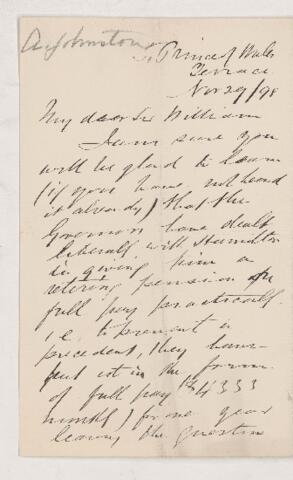 A Johnston
Prince of Wales
Terrace
Nov 29/98
My dear Sir William
I am sure you
will be glad to learn
(if you have not heard
it already) that the
Governors have dealt
liberally with Hamilton
in giving him a
retiring pension of
full pay practically
i.e. to prevent a
precedent, they have
put it in the form
of full pay (£4333
) for one year
leaving the question